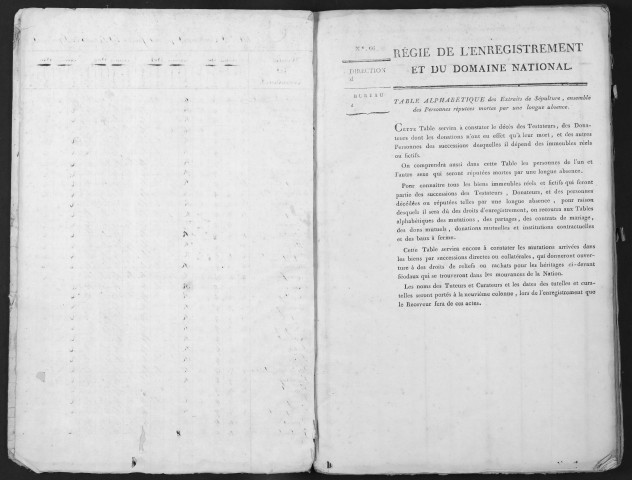 RÉGIE DE L'ENREGISTREMENT
ET DU DOMAINE NATIONAL.
DIRECTION
d
BUREAU
TABLE ALPHABÉTIQUE des Extraits de Sépulture, ensemble
des Personnes réputées mortes par une longue absence.
Cette Table servira à constater le décès des Testateurs, des Dona-
teurs dont les donations n'ont eu effet qu'à leur mort, et des autres
Personnes des successions desquelles il dépend des immeubles réels
ou fictifs.
On comprendra aussi dans cette Table les personnes de l'un et
l'autre sexe qui seront réputées mortes par une longue absence.
Pour connaître tous les biens immeubles réels et fictifs qui feront
partie des successions des Testateurs, Donateurs, et des personnes
décédées ou réputées telles par une longue absence, pour raison
desquels il sera dû des droits d'enregistrement, on recourra aux Tables
alphabétiques des mutations, des partages, des contrats de mariage,
des dons mutuels, donations mutuelles et institutions contractuelles
et des baux à ferme.
Cette Table servira encore à constater les mutations arrivées dans
les biens par successions directes ou collatérales, qui donneront ouver-
ture à des droits de reliefs ou rachats pour les héritages ci-devant
féodaux qui se trouveront dans les mouvances de la Nation.
Les noms des Tuteurs et Curateurs et les dates des tutelles et cura-
telles seront portés à la neuvième colonne, lors de l'enregistrement que
le Receveur fera de ces actes.